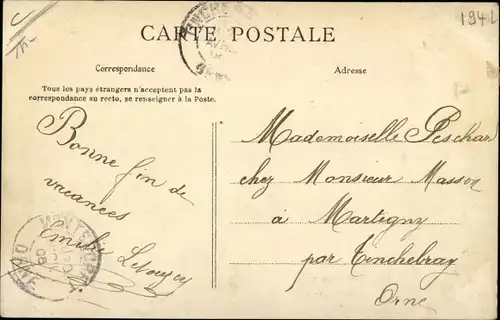 1942
CARTE POSTALE
Correspondance
Adresse
Tous les pays étrangers n'acceptent pas la
correspondance au recto, se renseigner à la Poste.
Bonne fin de
vacances
Emile
Mademoiselle Peschard
chez Monsieur Masson
à Martigny
par Tinchebray
Orne